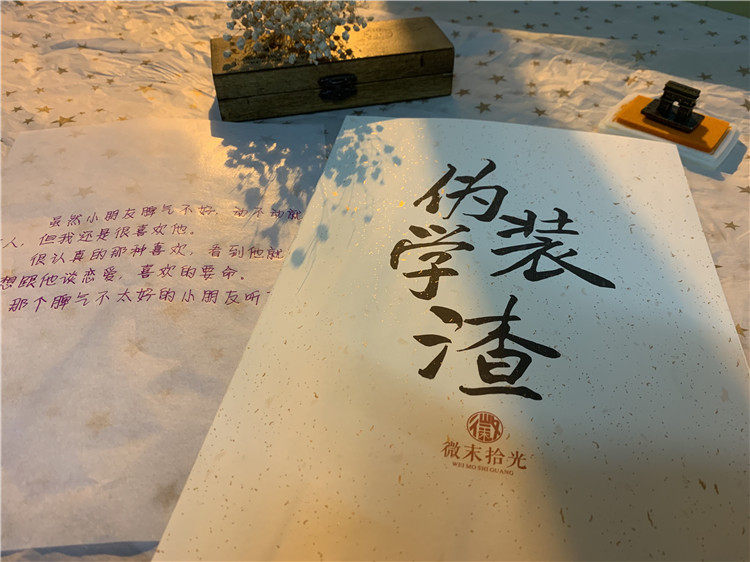 虽然小朋友脾气不好,动不动就
人,但我还是很喜欢他。
很认真的那种喜欢,看到他就
想跟他谈恋爱,喜欢的要命。
那个脾气不太好的小朋友听
伪装
学渣
微
微末拾光
WEI MO SHI GUANG